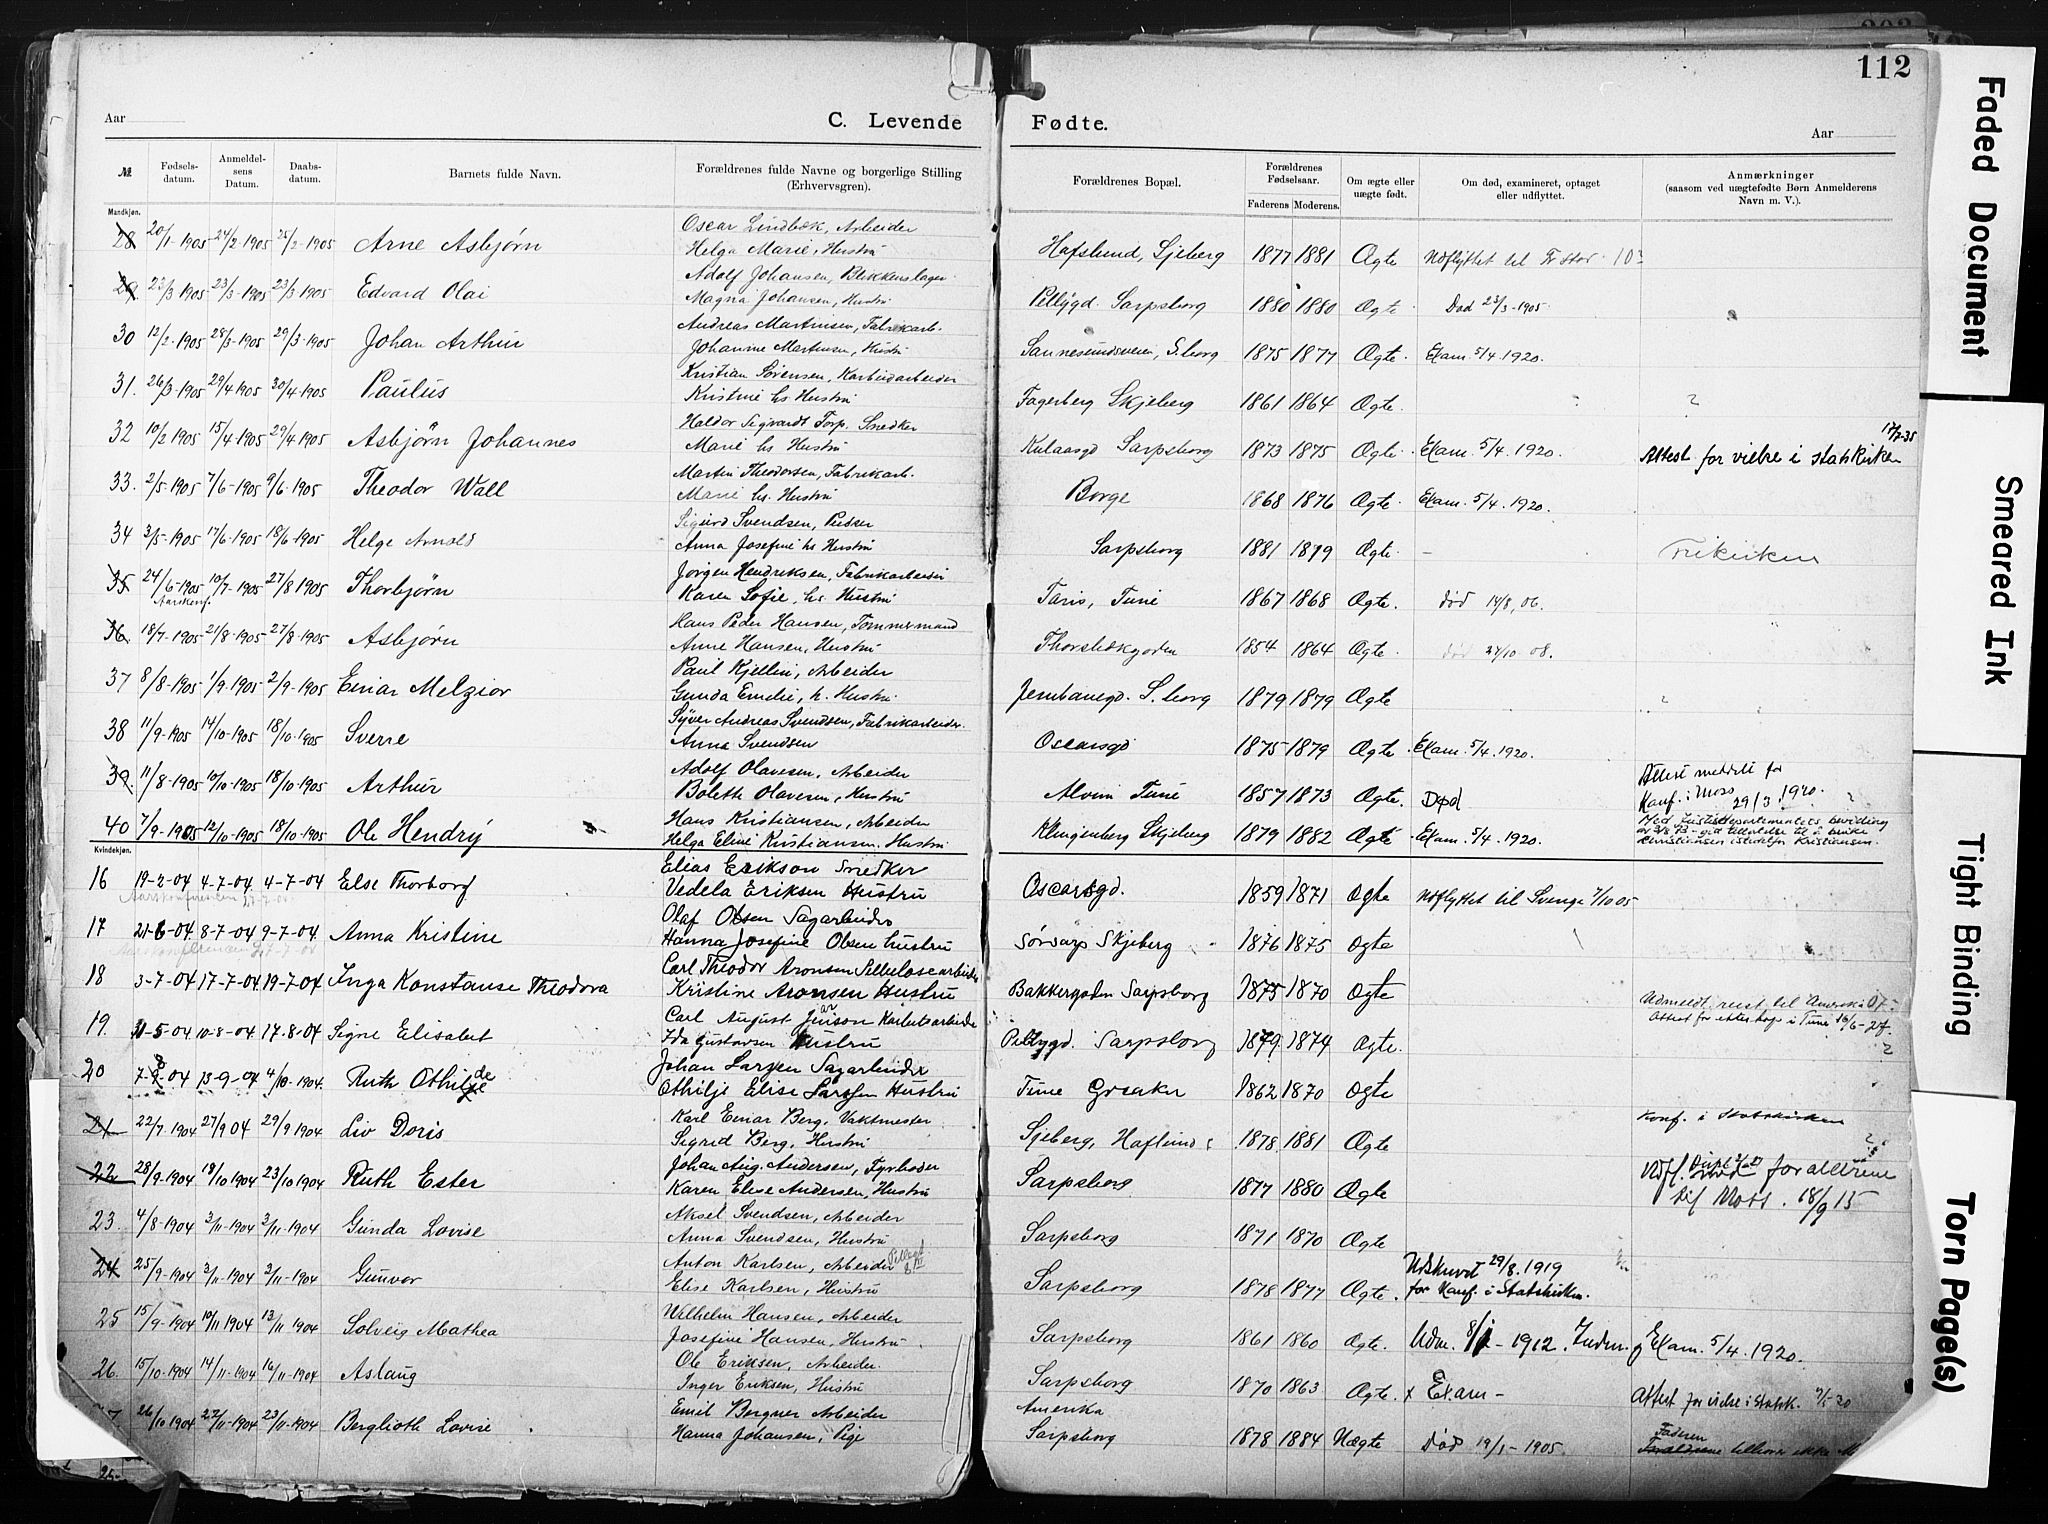 112
Aar
C. Levende Fødte.
Aar
№
Fødsels-datum.
Anmeldel-sens Datum.
Daabs-datum.
Barnets fulde Navn.
Forældrenes fulde Navne og borgerlige Stilling (Erhvervsgren).
Forældrenes Bopæl.
Forældrenes Fødselsaar.
Faderens Moderens.
Om ægte eller uægte født.
Om død, examineret, optaget eller udflyttet.
Anmærkninger (saasom ved uægtefødte Børn Anmelderens Navn m. V.).
Mandkjøn.
28 20/1-1905 24/2-1905 25/2-1905 Arne Asbjørn Oscar Lindbæk, Arbeider Hafslund, Sjeberg 1877 1881 Ægte Udflyttet til
Helga Marie, Hustru
29 23/3 1905 23/3-1905 23/3 1905 Edvard Olai Adolf Johansen, Blikkenslager Pellygd. Sarpsborg 1880 1880 Ægte Død 23/3-1905
Magna Johansen, Hustru
30 12/2-1905 28/3-1905 29/3-1905 Johan Arthur Andreas Martinsen, Fabrikarb. Sannesundsveien, S.borg 1875 1877 Ægte Exam. 5/4.1920.
Johanne Martinsen, Hustru
31. 26/3 1905 29/4 1905 30/4-1905 Paulus Kristian Sørensen, Karbidarbeider Fagerberg Skjeberg 1861 1864 Ægte ?
Kristine hs Hustru
32 10/2-1905 15/4-1905 29/4-1905 Asbjørn Johannes Haldor Sigvardt Torp. Snedker Kulaasgd Sarpsborg 1873 1875 Ægte Exam. 5/4.1920. Attest for vielse i statskirken 17/7-35
Marie hs Hustru
33. 2/5-1905 7/6-1905 9/6-1905 Theodor Wall Martin Theodorsen, Fabrikarb. Borge 1868 1876 Ægte Exam. 5/4.1920.
Marie hs. Hustru
34 3/5-1905 17/6-1905 18/6-1905 Helge Arnold Sigurd Svendsen, Pudser Sarpsborg 1881 1879 Ægte - Frikirken
Anna Josefine hs Hustru
35 24/6-1905 10/7-1905 27/8 1905 Thorbjørn Jørgen Hendriksen, Fabrikarbeider Taris, Tune 1867 1868 Ægte. Død 14/8, 06.
Karen Sofie, hs Hustru
36. 18/7-1905 21/8-1905 27/8-1905 Asbjørn Hans Peder Hansen, Tømmermand Thorsbækgaden 1854 1864 Ægte. Død 27/10 08.
Anne Hansen, Hustru
37 8/8-1905 1/9-1905 2/9-1905 Einar Melzior Paul Kjellin, Arbeider Jernbanegd. S.borg 1879 1879 Ægte
Gunda Emelie, h. Hustru
38 11/9-1905 14/10-1905 18/10 1905 Sverre Syver Andreas Svendsen, Fabrikarbeider. Oscarsgd 1875 1879 Ægte Exam. 5/4.1920.
Anna Svendsen
39. 11/8-1905 10/10-1905 18/10-1905 Arthur Adolf Olavesen, Arbeider Alvim Tune 1857 1873 Ægte. Død Attest meddelt for Konf. i Moss 29/3 1920.
Boleth Olavesen, Hustru
40 7/9-1905 12/10-1905 18/10-1905 Ole Hendry Hans Kristiansen, Arbeider Klingenberg Skjeberg 1879 1882 Ægte Exam. 5/4.1920. Med Justisdepartementets bevilling
Helga Eline Kristiansen. Hustru Christiansen istedetfor Kristiansen.
Kvindekjøn.
16 19-2-04 4-7-04 4-7-04 Else Thorborg Elias Erikson Snedker Oscarsgd. 1859 1871 Ægte Udflyttet til Sverige 7/10 05
Vedela Eriksen Hustru
17 21-6-04 8-7-04 9-7-04 Anna Kristine Olaf Olsen Sagarbeider Sørsarp Skjeberg 1876 1875 ægte
Hanna Josefine Olsen hustru
18 3-7-04 17-7-04 19-7-04 Inga Konstanse Theodora Carl Theodor Aronsen Selbulosearbeider Bakkergaden Sarpsborg 1875 1870 Ægte
Kristine Aronsen Hustru
Udmeldt, reist til Amerika 07.
19. 21-5-04 10-8-04 17-8-04 Signe Elisabet Carl August Jenson Karbidarbeider Pellygd. Sarpsborg 1879 1874 Ægte. Attest for ekteskap i Tune 16/6-27.
Ida Gustavsen Hustru ?
20 7-8-04 13-9-04 4/10-1904 Ruth Othilde Johan Larsen Sagarbeider Tune Greaker 1862 1870 Ægte
Othilje Elise Larssen Hustru
21 22/7 1904 27/9 04 29/9 1904 Liv Doris Karl Einar Berg, Vaktmester Sjeberg, Haflund 1878 1881 Ægte Konf. i Statskirken
Sigrid Berg, Hustru
22 28/9-1904 18/10 1904 23/10 1904 Ruth Ester Johan Aug. Andersen, Fyrbøder Sarpsborg 1877 1880 Ægte Udfl. foreldrene til Moss. 18/9 15
Karen Elise Andersen, Hustru
23. 4/8-1904 3/11-1904 3/11-1904 Gunda Lovise Aksel Svendsen, Arbeider Sarpsborg 1871 1870 Ægte
Anna Svendsen, Hustru
24 25/9-1904 3/11-1904 3/11-1904 Gunvor Anton Karlsen, Arbeider Sarpsborg 1878 1877 Ægte. Udskrevet 29/8.1919 for Konf. i Statskirken.
Elise Karlsen, Hustru
25 15/9-1904 10/11 1904 13/11 1904 Solveig Mathea Wilhelm Hansen, Arbeider Sarpsborg 1861 1860 Ægte. Udm. 1912. Indm. og Exam. 5/4.1920.
Josefine Hansen, Hustru
26. 15/10-1904 14/11-1904 16/11-1904 Aslaug Ole Eriksen, Arbeider Sarpsborg 1870 1863 Ægte. x Exam- Attest for vielse i Statsk.
Inger Eriksen, Hustru
26/10 1904 22/11-1904 23/11-1904 Berglioth Lovise Emil Bergner Arbeider Amerika
Hanna Johansen, Pige Sarpsborg 1878 1884 Uægte Død 19/1-1905. Faderen tilhører ikke M
Faded Document
Smeared Ink
Tight Binding
Torn Page(s)